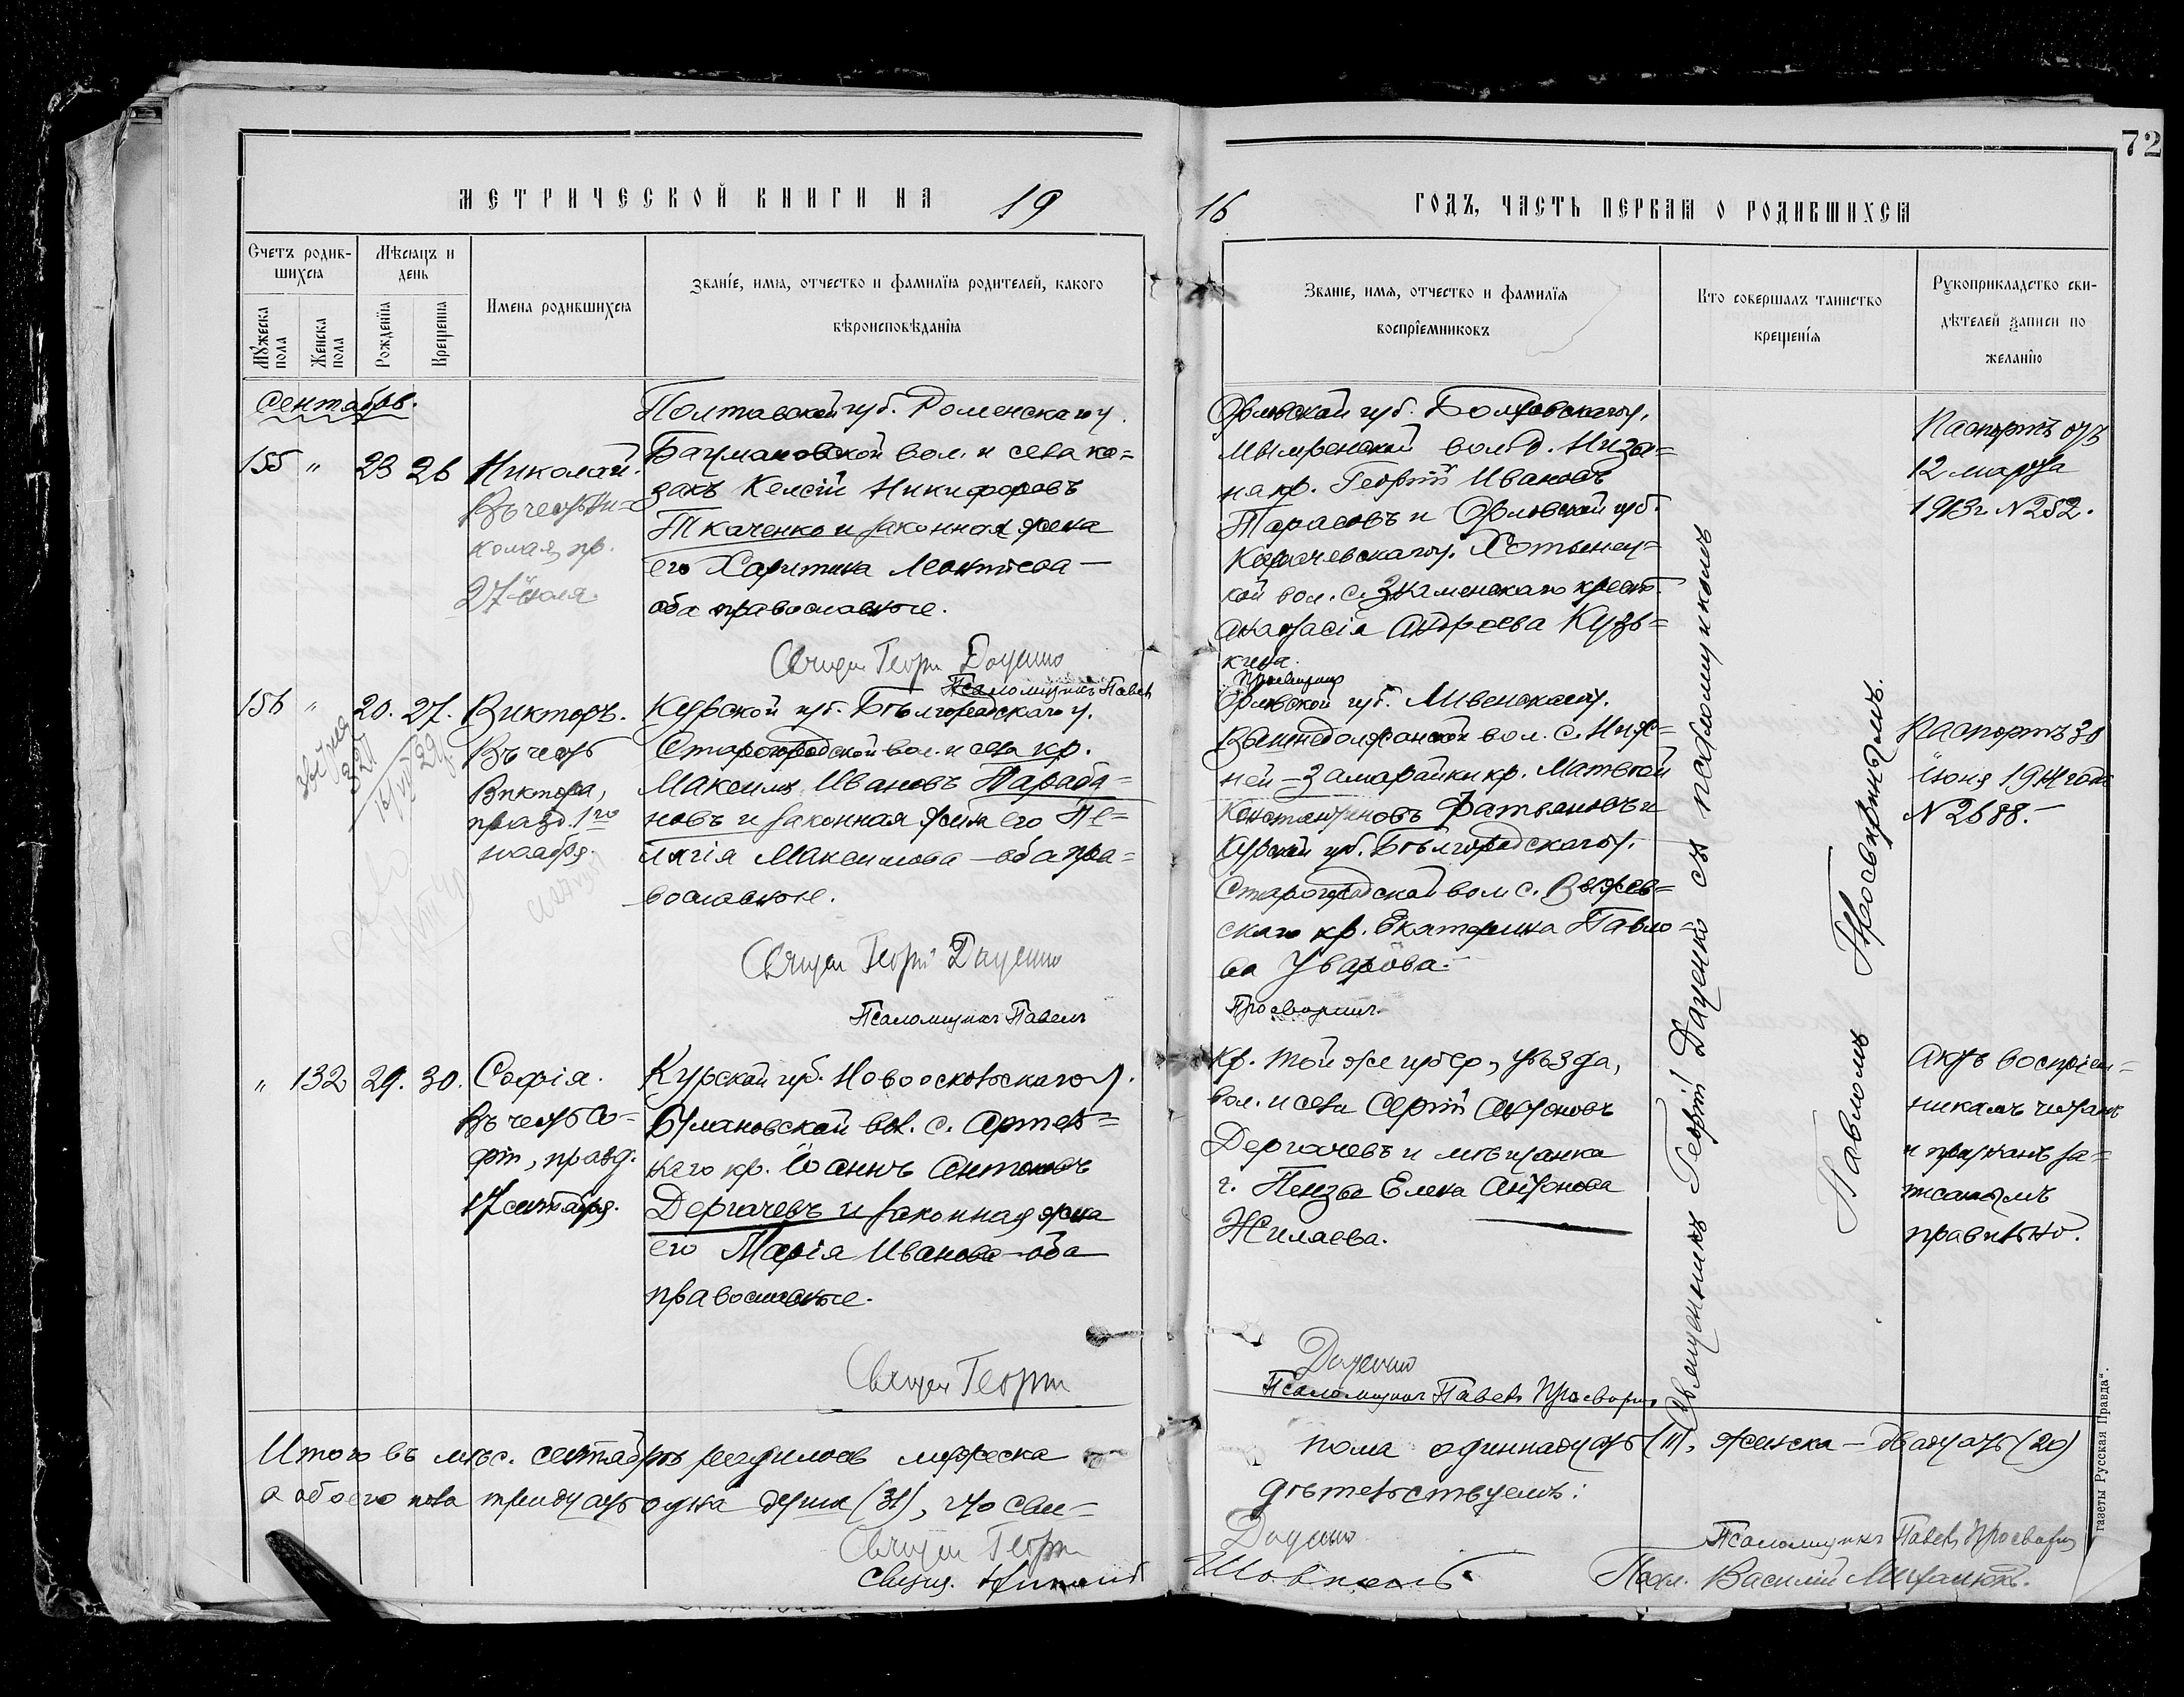 72
МЕТРИЧЕСКОЙ КНИГИ НА 19
16 ГОДЪ, ЧАСТЬ ПЕРВАЯ О РОДИВШИХСЯ
Счетъ родив-
шихся
Мужеска пола
Женска пола
Мѣсяцъ и
день
Рожденія
Крещенія
Имена родившихся
Званіе, имя, отчество и фамилія родителей, какого
вѣроисповѣданія
Званіе, имя, отчество и фамилія
воспріемниковъ
Кто совершалъ таинство
крещенія
Рукоприкладство сви-
дѣтелей записи по
желанію
Сентябрь.
155 " 23 26 Николай.
Въ честь Ни-
колая, пр.
27 іюля.
Полтавской губ. Роменскаго у.
Бацмановской вол. и села ка-
закъ Келсій Никифоровъ
Ткаченко и законная жена
его Харитина Леонтіева —
оба православные.
Священ Георгій Даценко
Псаломщикъ Павелъ
Орловской губ. Болховскаго у.
Мымренской вол. д.
на кр. Георгій Ивановъ
Тарасовъ и Орловской губ.
Карачевскаго у. Хотынец-
кой вол. с. Знаменскаго крест.
Анастасія Андреева Кузь-
кина.
Просвирнинъ
Паспортъ отъ
12 марта
1913 г. № 252.
156 " 20. 27. Викторъ.
Въ честь
Виктора,
празд. 11го
ноября.
Курской губ. Бѣлгородскаго у.
Старогородской вол. и села кр.
Максимъ Ивановъ Параба-
новъ и законная жена его Пе-
лагія Максимова — оба пра-
вославные.
Священ Георгій Даценко
Псаломщикъ Павелъ
Орловской губ. Ливенскаго у.
вол. с. Ниж-
ней-Замарайки кр. Матвей
Константиновъ Фатьяновъ и
Курской губ. Бѣлгородскаго у.
Старогородской вол. с.
скаго кр. Екатерина Павло-
ва Уварова.
Просвирнинъ.
Паспортъ 30
іюня 1914 года
№ 2688.—
" 132 29. 30. Софія.
Въ честь Со-
фіи, празд.
17 сентября.
Курской губ. Новооскольскаго у.
вол. с.
каго кр. Іоаннъ Антоновъ
Дергачевъ и законная жена
его Марія Иванова — оба
православные.
Священ Георгій
Кр. той же губер., уѣзда,
вол. и села Сергій Антоновъ
Дергачевъ и мѣщанка
г. Пензы Елена Антонова
Жиляева.
Даценко
Псаломщикъ Павелъ Просвирнинъ
Актъ воспріем-
никамъ читанъ
и признанъ за-
писаннымъ
правильно.
Священникъ Георгій Даценко съ псаломщикомъ
Павломъ Просвирнинымъ.
Итого въ мѣс. сентябрѣ родилось мужеска
пола одиннадцать (11), женска — двадцать (20)
а обоего пола тридцать одна душа (31), что сви-
дѣтельствуемъ:
Священ Георгій
Даценко
Псаломщикъ Павелъ Просвирнинъ
Псал. Василій
газеты Русская Правда".